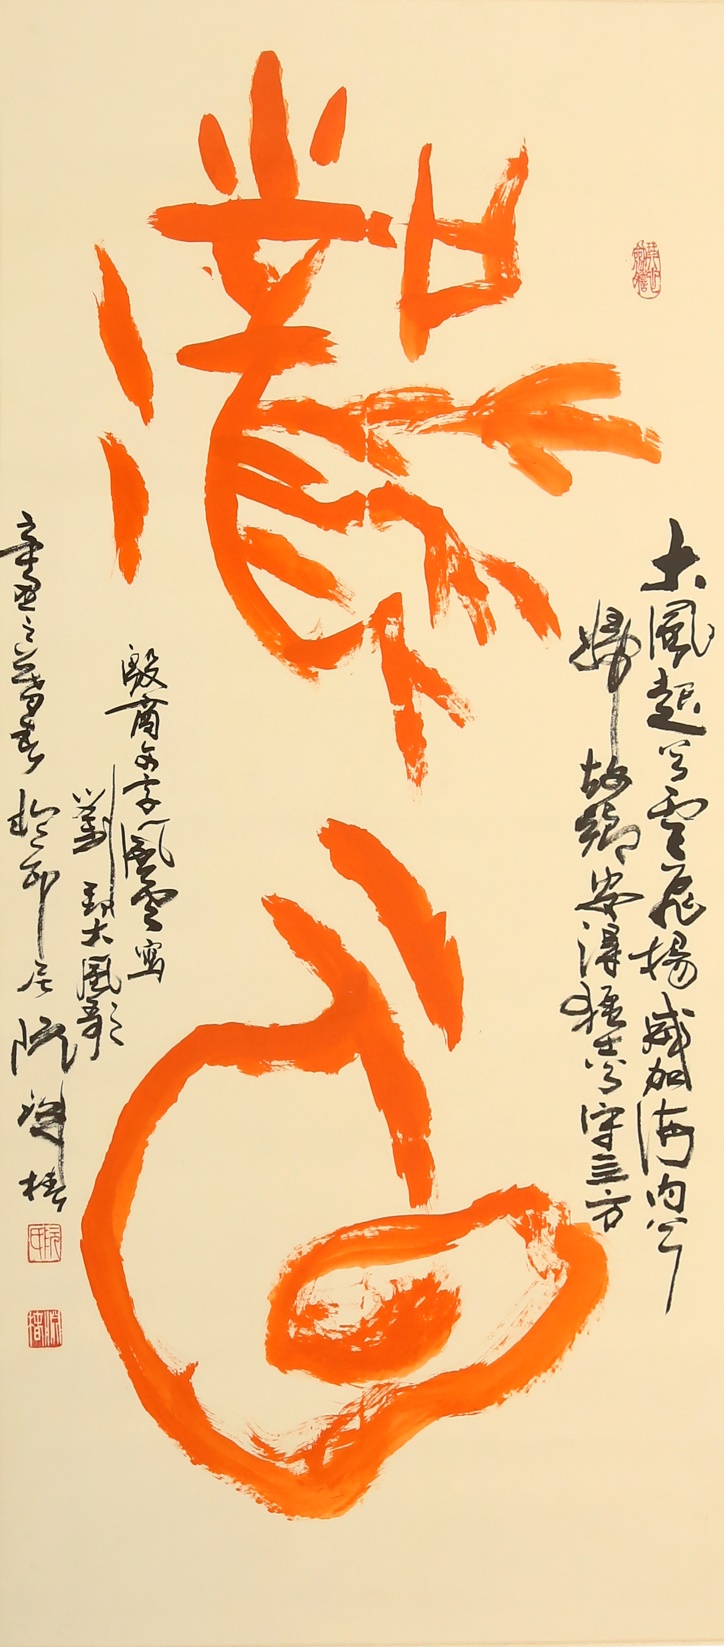 風雲
大風起兮雲飛揚威加海内兮
歸故鄉安得猛士兮守亖方
殷商文字風雲寫
劉邦大風歌
辛丑之暮春於 阮 椿